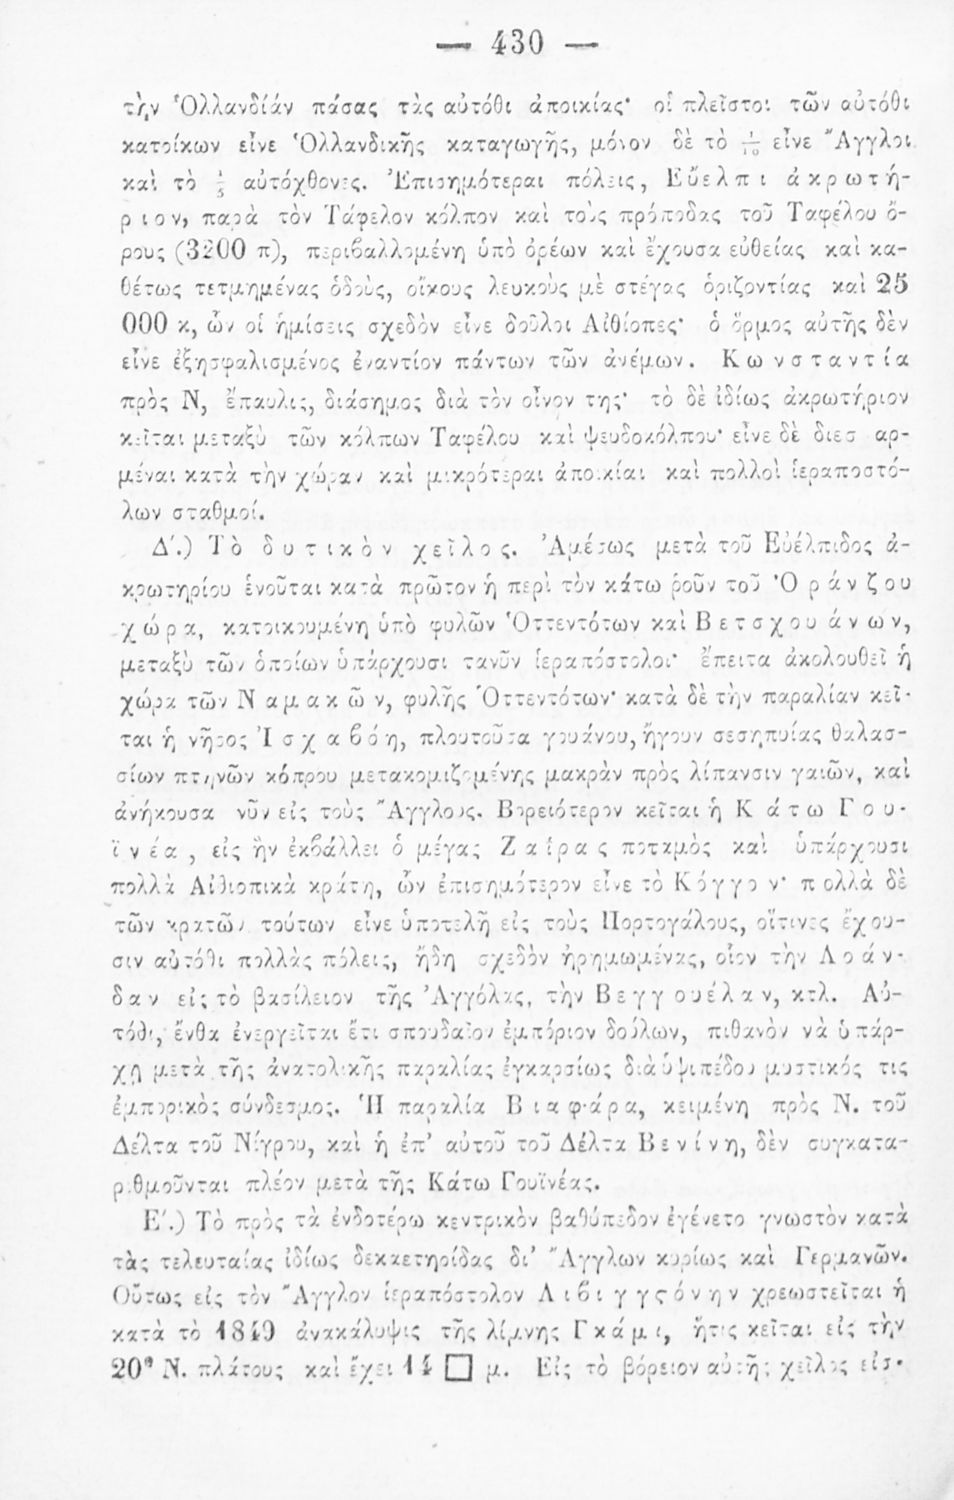 — 430 —
τὴν Ὁλλανδίάν πάσας τὰς αὐτόθι ἀποικίας· οἱ πλεῖστοι τῶν αὐτόθι
κατοίκων εἶνε Ὁλλανδικῆς καταγωγῆς, μόνον δὲ τὸ 1/10 εἶνε Ἄγγλοι
καὶ τὸ 1/5 αὐτόχθονες. Ἐπισημότεραι πόλεις, Εὔελπι ἀκρωτή-
ριον, παρὰ τὸν Τάφελον κόλπον καὶ τοὺς πρόποδας τοῦ Ταφέλου ὄ-
ρους (3200 π), περιβαλλομένη ὑπὸ ὀρέων καὶ ἔχουσα εὐθείας καὶ κα-
θέτως τετμημένας ὁδοὺς, οἴκους λευκοὺς μὲ στέγας ὁριζοντίας καὶ 25
000 κ, ὧν οἱ ἡμίσεις σχεδὸν εἶνε δοῦλοι Αἰθίοπες· ὁ ὅρμος αὐτῆς δὲν
εἶνε ἐξησφαλισμένος ἐναντίον πάντων τῶν ἀνέμων. Κωνσταντία
πρὸς Ν, ἔπαυλις, διάσημος διὰ τὸν οἶνον της· τὸ δὲ ἰδίως ἀκρωτήριον
κεῖται μεταξὺ τῶν κόλπων Ταφέλου καὶ ψευδοκόλπου· εἶνε δὲ διεσ αρ-
μέναι κατὰ τὴν χώραν καὶ μικρότεραι ἀποικίαι καὶ πολλοὶ ἱεραποστό-
λων σταθμοί.
Δ΄.) Τὸ δυτικὸν χεῖλος. Ἀμέσως μετὰ τοῦ Εὐέλπιδος ἀ-
κρωτηρίου ἑνοῦται κατὰ πρῶτον ἡ περὶ τὸν κάτω ῥοῦν τοῦ Ὀράνζου
χώρα, κατοικουμένη ὑπὸ φυλῶν Ὁττεντότων καὶ Βετσχουάνων,
μεταξὺ τῶν ὁποίων ὑπάρχουσι τανῦν ἱεραπόστολοι· ἔπειτα ἀκολουθεῖ ἡ
χώρα τῶν Ναμακῶν, φυλῆς Ὁττεντότων· κατὰ δὲ τὴν παραλίαν κεῖ-
ται ἡ νῆσος Ἰσχαβόη, πλουτοῦσα γουάνου, ἤγουν σεσηπυίας θαλασ-
σίων πτηνῶν κόπρου μετακομιζομένης μακρὰν πρὸς λίπανσιν γαιῶν, καὶ
ἀνήκουσα νῦν εἰς τοὺς Ἄγγλους. Βορειότερον κεῖται ἡ Κάτω Γου-
ϊνέα, εἰς ἣν ἐκβάλλει ὁ μέγας Ζαΐρας ποταμὸς καὶ ὑπάρχουσι
πολλὰ Αἰθιοπικὰ κράτη, ὧν ἐπισημότερον εἶνε τὸ Κόγγον· πολλὰ δὲ
τῶν κρατῶν τούτων εἶνε ὑποτελῆ εἰς τοὺς Πορτογάλους, οἵτινες ἔχου-
σιν αὐτόθι πολλὰς πόλεις, ἤδη σχεδὸν ἠρημωμένας, οἷον τὴν Λοάν-
δαν εἰς τὸ βασίλειον τῆς Ἀγγόλας, τὴν Βεγγουέλαν, κτλ. Αὐ-
τόθι, ἔνθα ἐνεργεῖται ἔτι σπουδαῖον ἐμπόριον δούλων, πιθανὸν νὰ ὑπάρ-
χῃ μετὰ τῆς ἀνατολικῆς παραλίας ἐγκαρσίως διὰ ὑψιπέδου μυστικός τις
ἐμπορικὸς σύνδεσμος. Ἡ παραλία Βιαφάρα, κειμένη πρὸς Ν. τοῦ
Δέλτα τοῦ Νίγρου, καὶ ἡ ἐπ' αὐτοῦ τοῦ Δέλτα Βενίνη, δὲν συγκατα-
ριθμοῦνται πλέον μετὰ τῆς Κάτω Γουϊνέας.
Ε΄.) Τὸ πρὸς τὰ ἐνδοτέρω κεντρικὸν βαθύπεδον ἐγένετο γνωστὸν κατὰ
τὰς τελευταίας ἰδίως δεκαετηρίδας δι' Ἄγγλων κυρίως καὶ Γερμανῶν.
Οὕτως εἰς τὸν Ἄγγλον ἱεραπόστολον Λιβιγγςόνην χρεωστεῖται ἡ
κατὰ τὸ 1849 ἀνακάλυψις τῆς λίμνης Γκάμι, ἥτις κεῖται εἰς τὴν
20° Ν. πλάτους καὶ ἔχει 14 □ μ. Εἰς τὸ βόρειον αὐτῆς χεῖλος εἰσ-